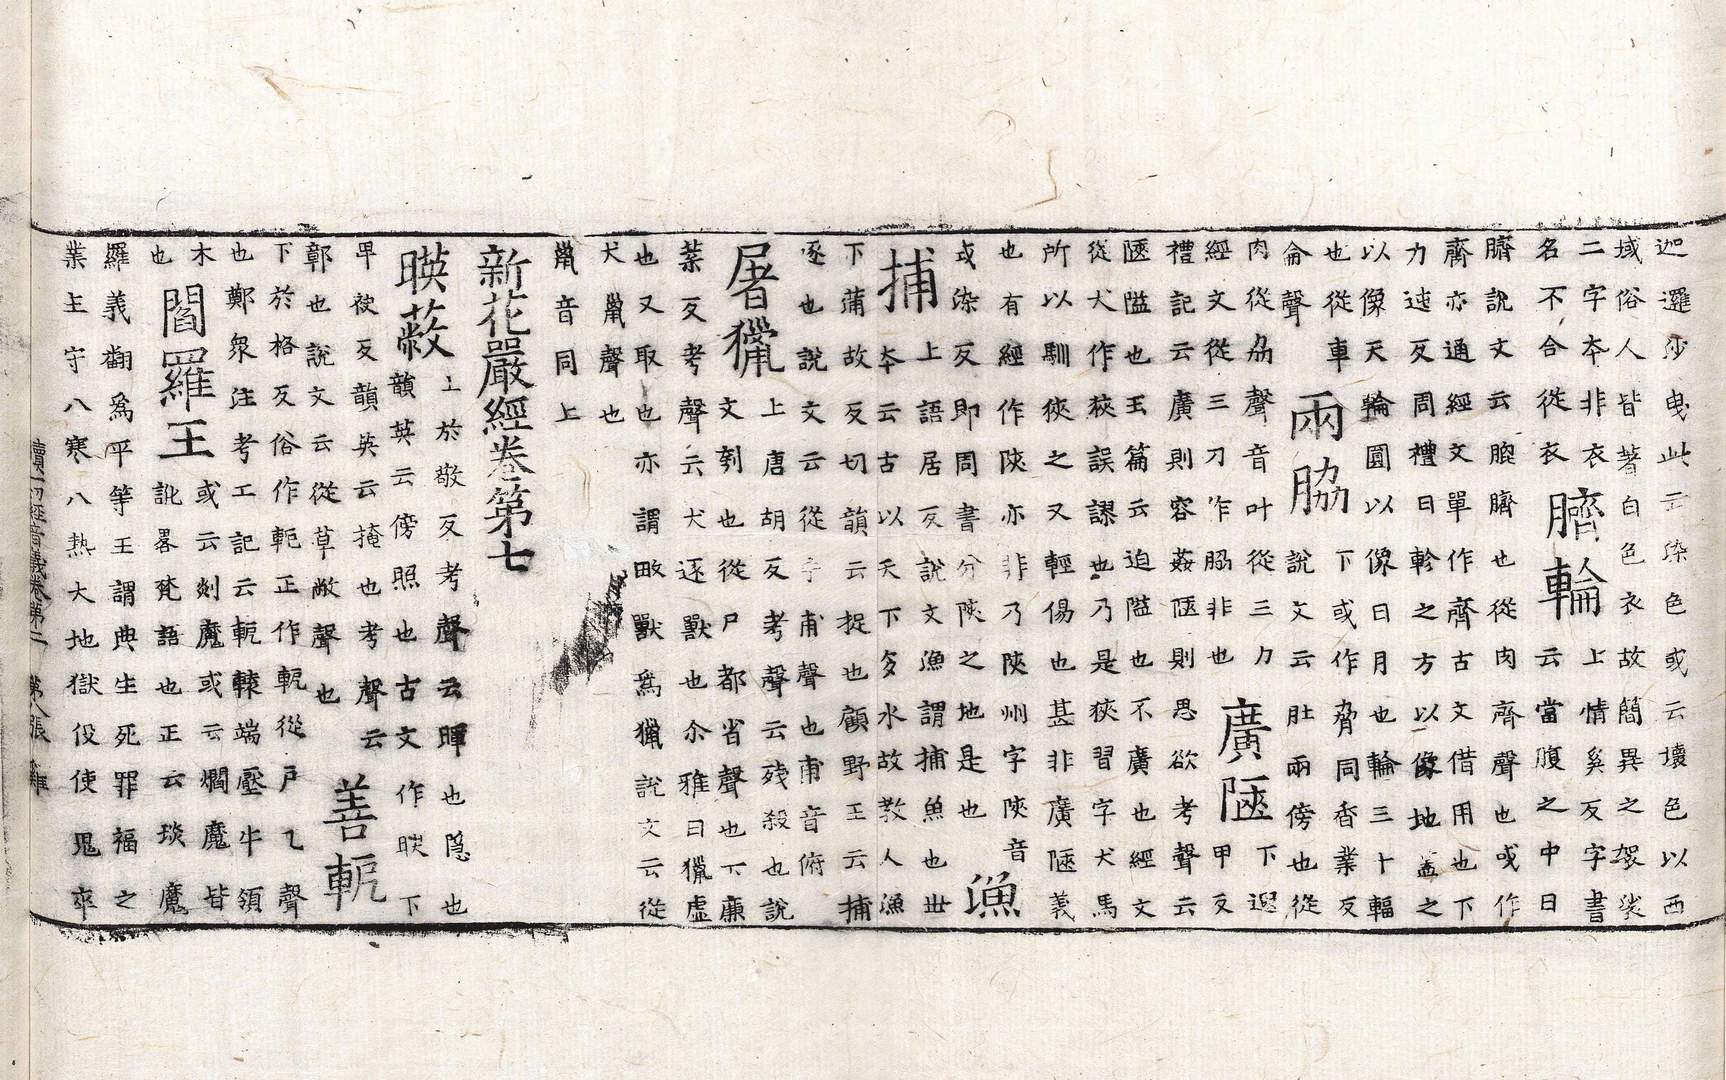 迦邏沙曳此云染色或云壞色以西
域俗人皆著白色衣故簡異之袈裟
二字夲非衣
名不合從衣
臍輪
上情奚反字書
云當腹之中曰
臍說文云膍臍也從肉齊聲也或作
齎亦通經文單作齊古文借用也下
力迍反周禮曰軫之方以像地蓋之
以像天輪圓以像日月也輪三十輻
也從車
侖聲
兩脇
下或作脅同香業反
說文云肚兩傍也從
肉從劦聲音叶從三力
經文從三刀作脇非也
廣陿
下遐
甲反
禮記云廣則容姦陿則思欲考聲云
陿隘也玉篇云迫隘也不廣也經文
從犬作狹誤謬也乃是狹習字犬馬
所以馴狹之又輕傷也甚非廣陿義
也有經作陝亦非乃陝州字陝音
戓染反即周書分陝之地是也
漁
捕
上語居反說文漁謂捕魚也世
夲云古以天下多水故教人漁
下蒲故反切韻云捉也顧野王云捕
逐也說文云從手甫聲也甫音俯
屠獵
上唐胡反考聲云殘殺也說
文刳也從尸都省聲也下廉
葉反考聲云犬逐獸也尒雅曰獵虛
也又取也亦謂畋獸爲獵說文云從
犬巤聲也
巤音同上
新花嚴經卷第七
暎蔽
上於敬反考聲云暉也隱也
韻英云傍照也古文作映下
卑袂反韻英云掩也考聲云
鄣也說文云從草敝聲也
善軛
下於格反俗作軛正作軶從戶乙聲
也鄭衆注考工記云軛轅端壓牛領
木
也
閻羅王
或云剡魔或云爓魔皆
訛畧梵語也正云琰魔
羅義翻爲平等王謂典生死罪福之
業主守八寒八熱大地獄伇使鬼卒
續一切經音義卷第二 第八張